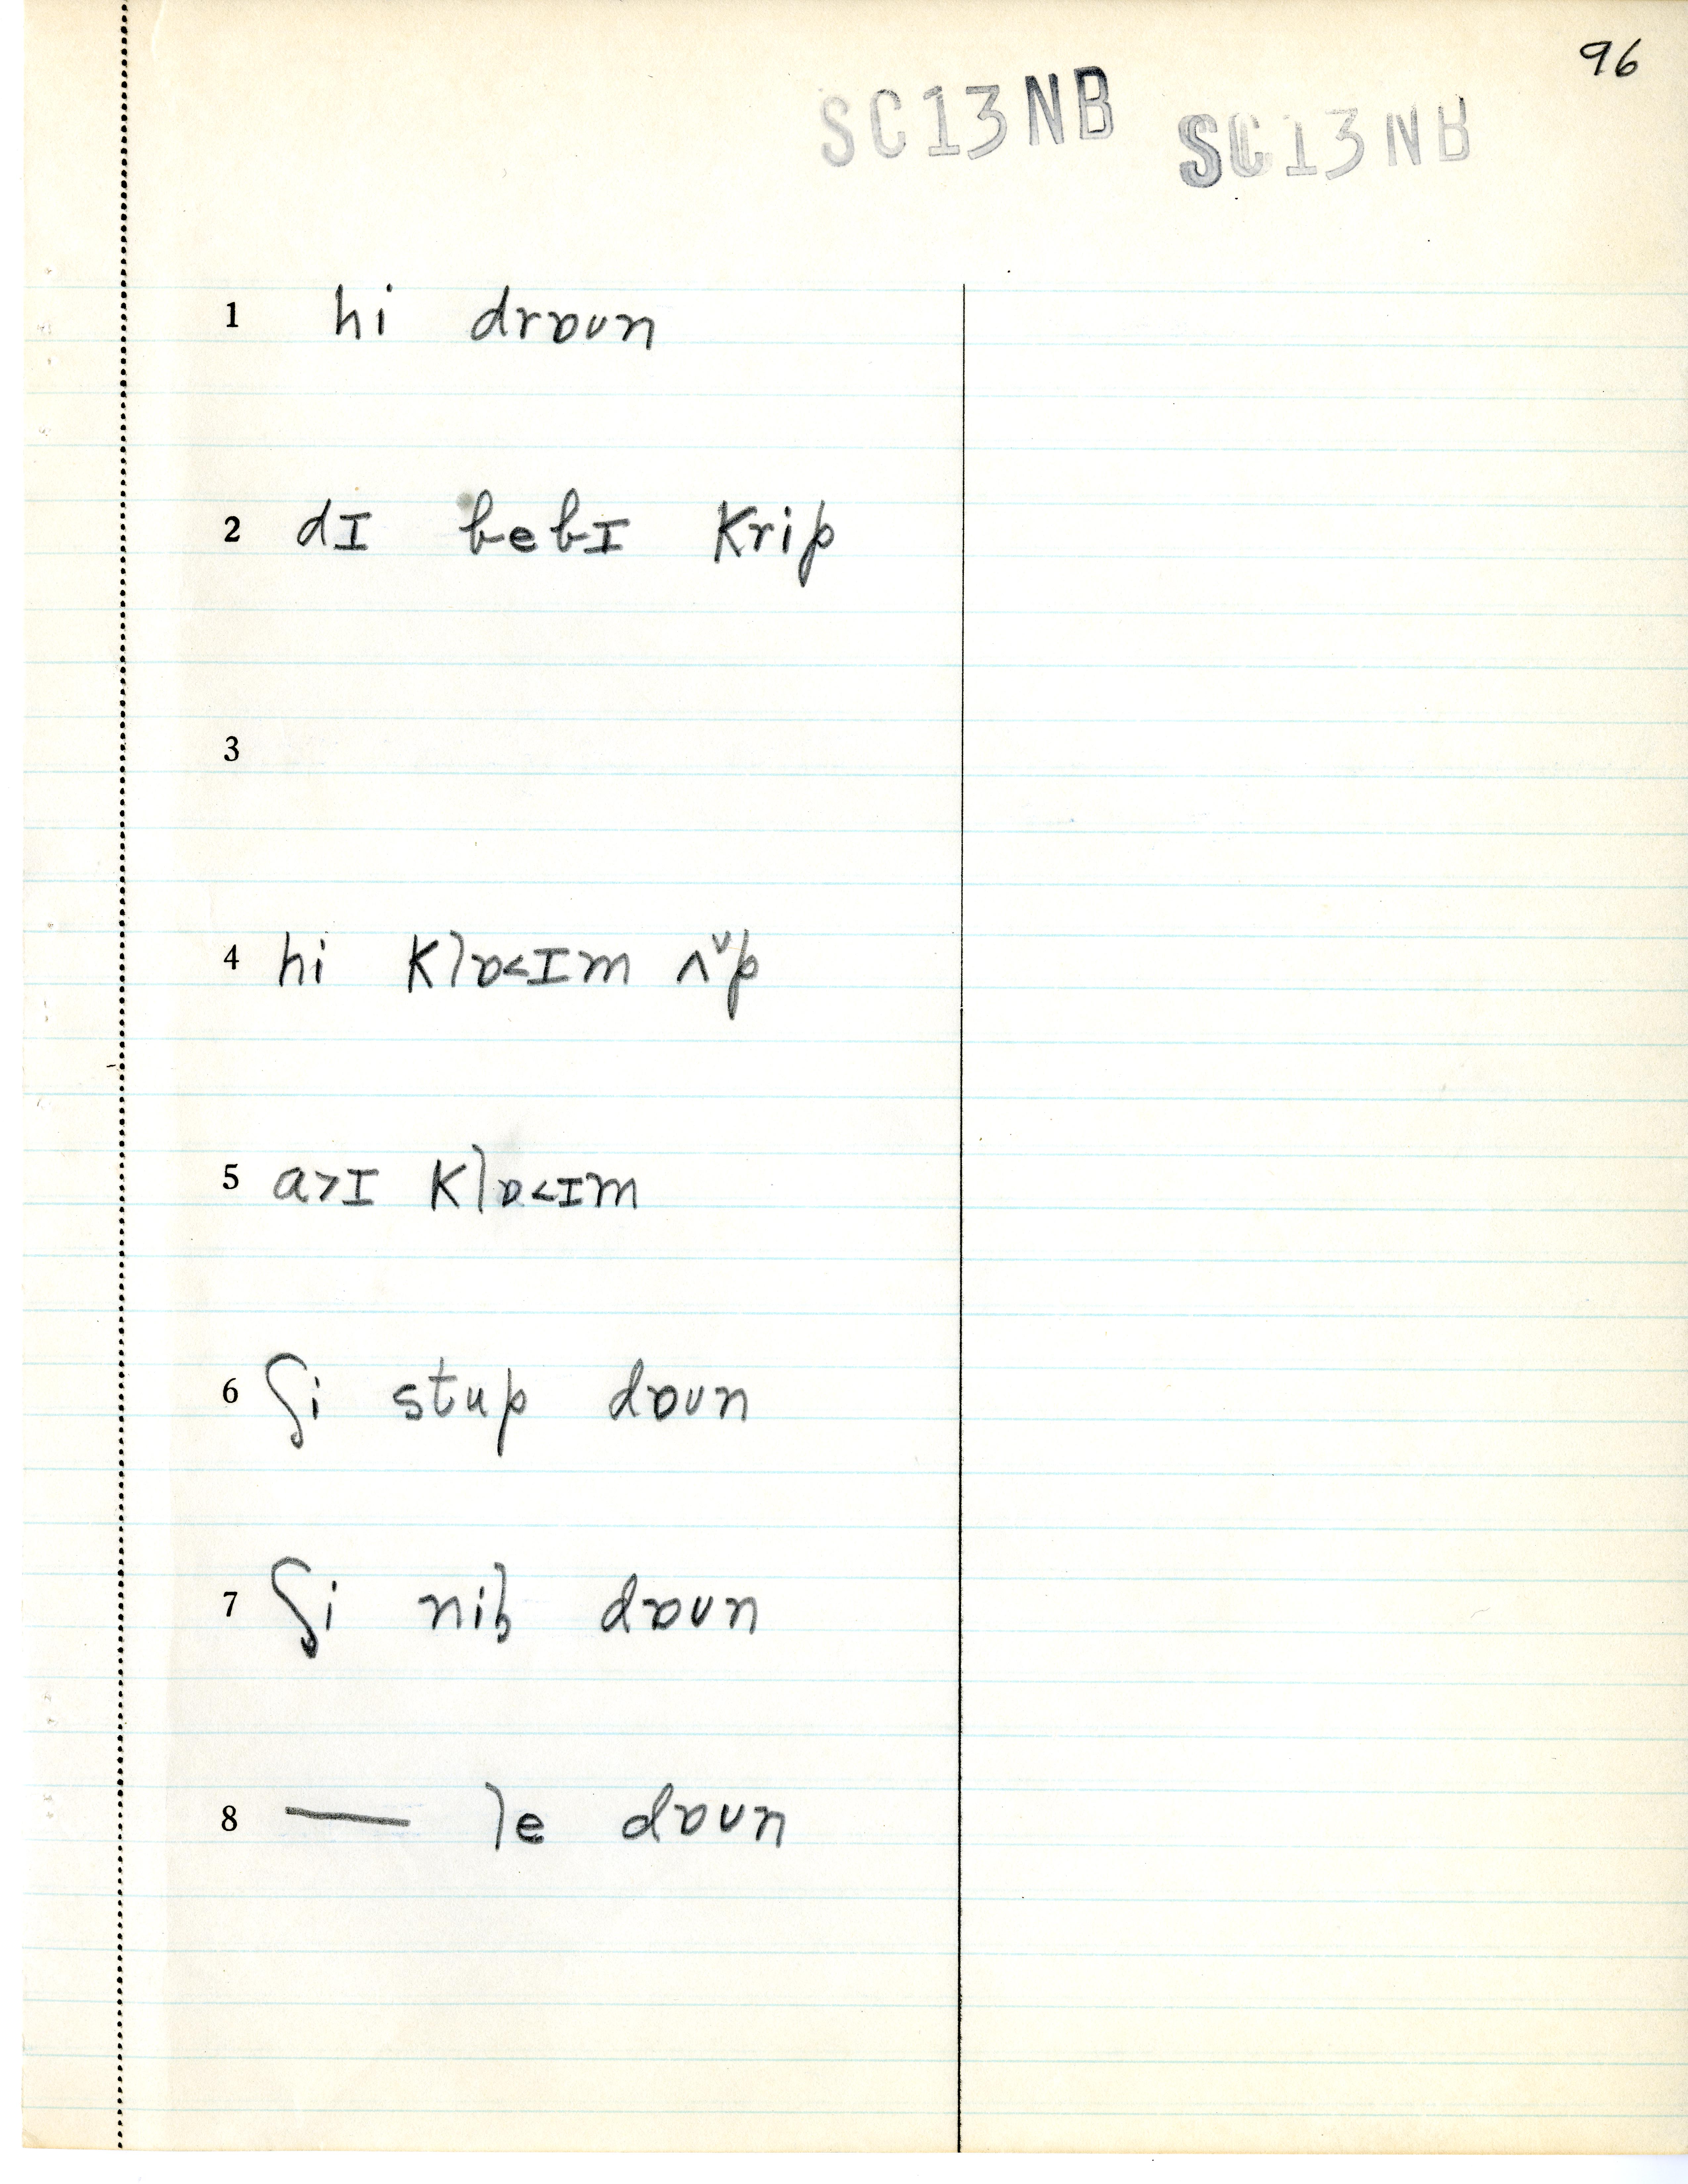 96
SC13NB SC13NB
1 hi drɒʊn
2 dɪ bebɪ krip
3
4 hi klɒ<ɪm ʌˇp
5 a>ɪ klɒ<ɪm
6 ʃi stup dɒʊn
7 ʃi niɫ dɒʊn
8 — le dɒʊn